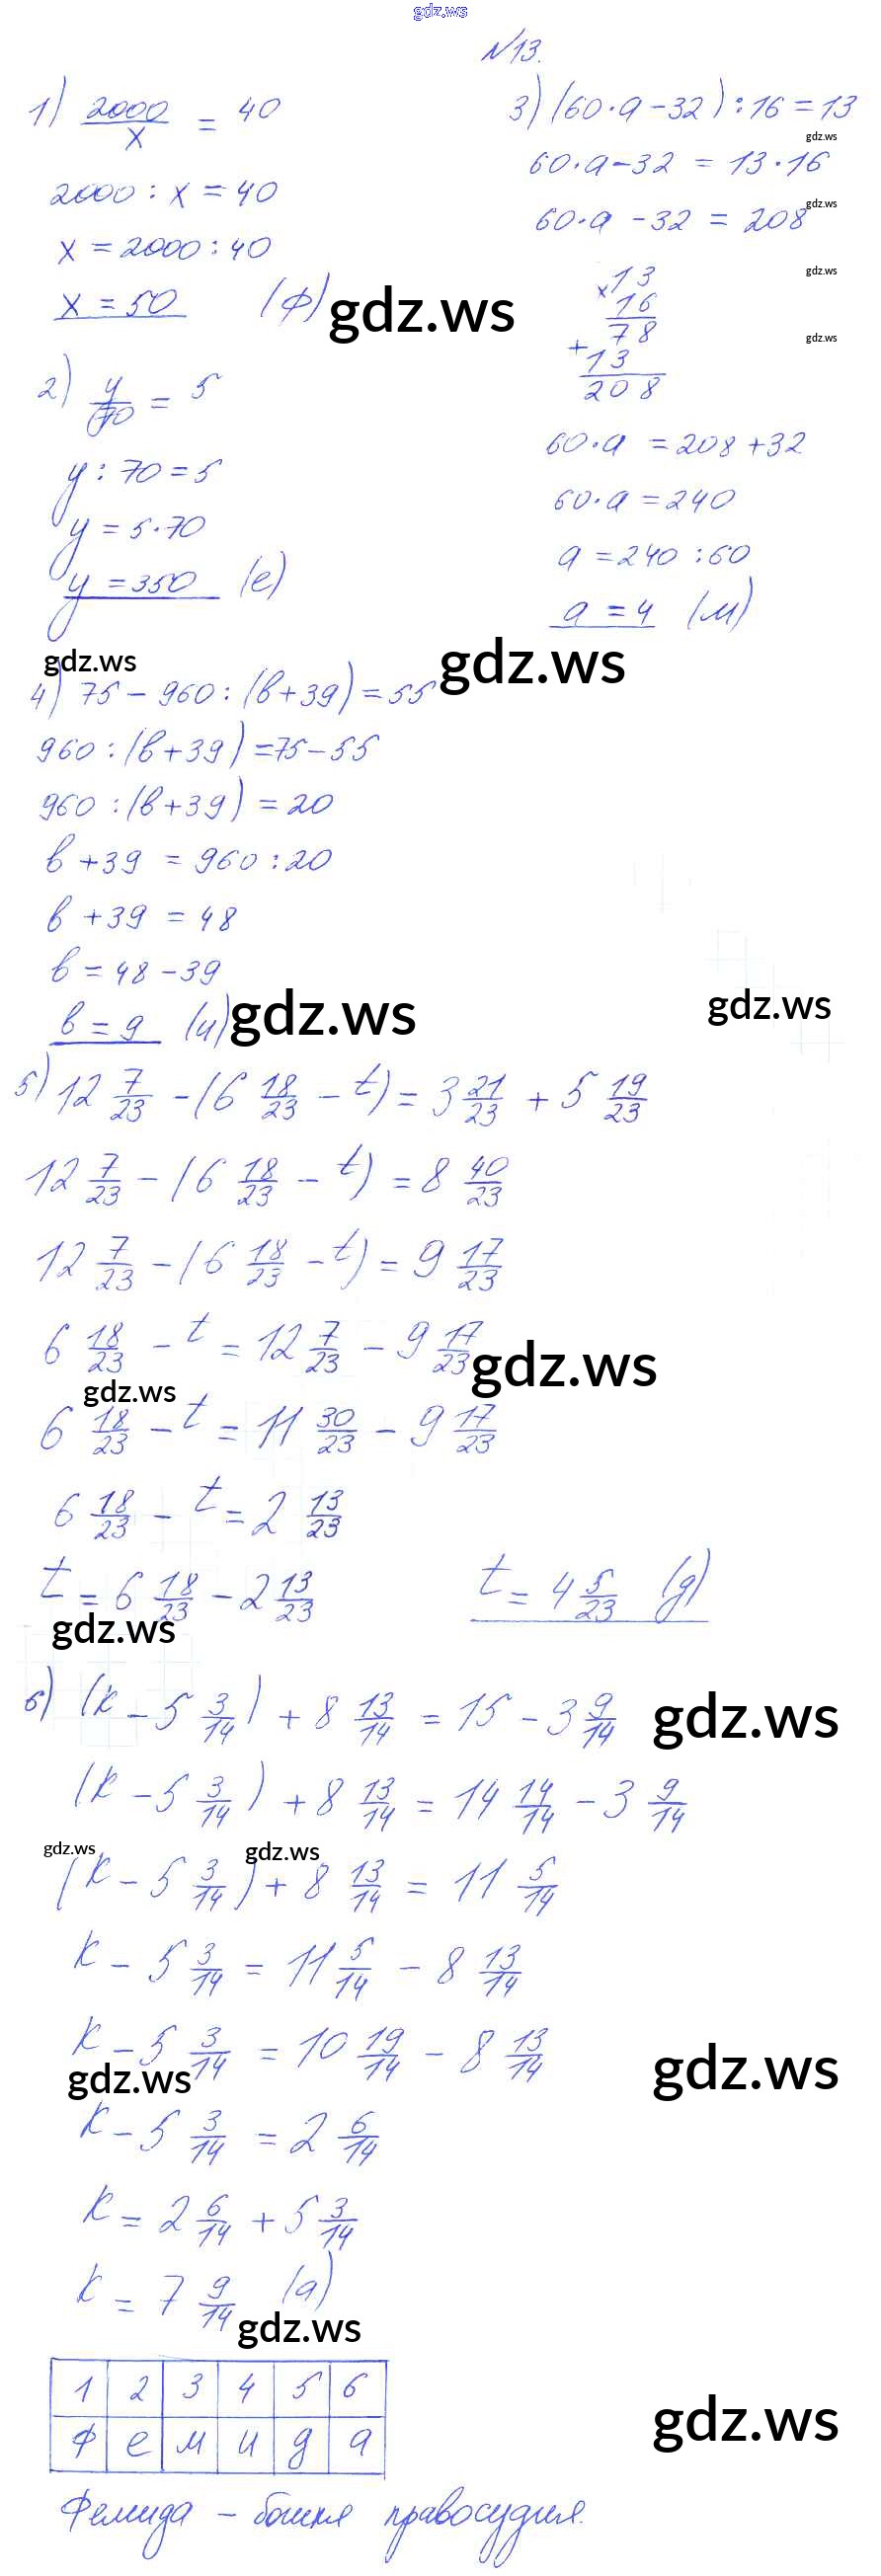 gdz.ws
№13.
1) 2000/x = 40
2000 : x = 40
x = 2000 : 40
x = 50 (ф)
gdz.ws
2) y/70 = 5
y : 70 = 5
y = 5 · 70
y = 350 (е)
gdz.ws
3) (60 · a - 32) : 16 = 13
gdz.ws
60 · a - 32 = 13 · 16
gdz.ws
60 · a - 32 = 208
gdz.ws
× 13
16
gdz.ws
78
+ 13
208
60 · a = 208 + 32
60 · a = 240
a = 240 : 60
a = 4 (м)
gdz.ws
4) 75 - 960 : (в + 39) = 55
960 : (в + 39) = 75 - 55
960 : (в + 39) = 20
в + 39 = 960 : 20
в + 39 = 48
в = 48 - 39
в = 9 (и)
gdz.ws
gdz.ws
5) 12 7/23 - (6 18/23 - t) = 3 21/23 + 5 19/23
12 7/23 - (6 18/23 - t) = 8 40/23
12 7/23 - (6 18/23 - t) = 9 17/23
6 18/23 - t = 12 7/23 - 9 17/23
gdz.ws
gdz.ws
6 18/23 - t = 11 30/23 - 9 17/23
6 18/23 - t = 2 13/23
t = 6 18/23 - 2 13/23
t = 4 5/23 (д)
gdz.ws
6) (k - 5 3/14) + 8 13/14 = 15 - 3 9/14
gdz.ws
(k - 5 3/14) + 8 13/14 = 14 14/14 - 3 9/14
gdz.ws
gdz.ws
(k - 5 3/14) + 8 13/14 = 11 5/14
k - 5 3/14 = 11 5/14 - 8 13/14
k - 5 3/14 = 10 19/14 - 8 13/14
gdz.ws
gdz.ws
k - 5 3/14 = 2 6/14
k = 2 6/14 + 5 3/14
k = 7 9/14 (а)
gdz.ws
1 2 3 4 5 6
Ф е м и д а
gdz.ws
Фемида - богиня правосудия.